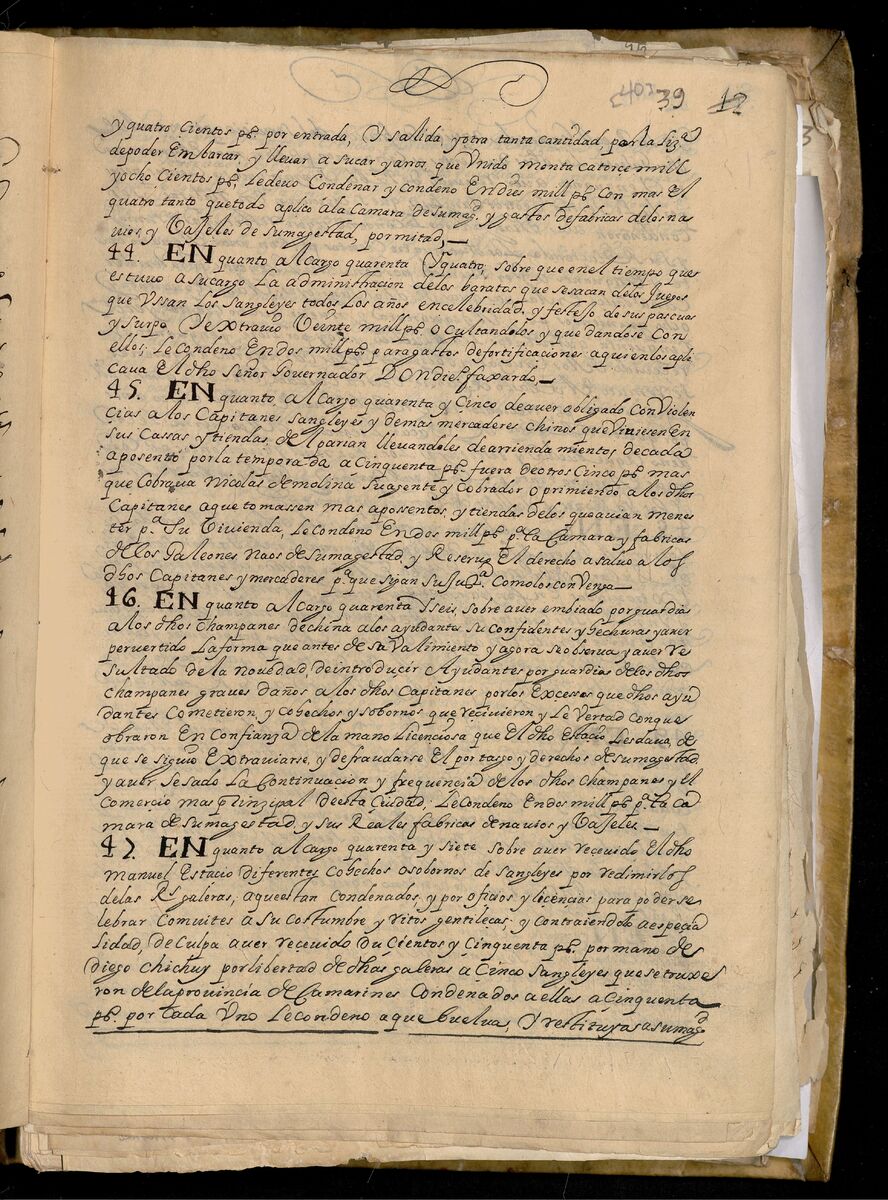 403 39 12
y quatro cientos ps. por entrada, Y salida, y otra tanta cantidad, por la liza
de poder Embarcar, y lleuar asucar y arros, que Vnido monta catorce mill
y ocho cientos ps. Le deuo Condenar y condeno En dies mill ps. Con mas El
quatro tanto que todo aplico á la Camara de su magd. y gastos de fabricas de los na
uios, y Vajeles de su magestad, por mitad,—
44. EN quanto al Cargo quarenta Y quatro, sobre que en el tiempo que
estuuo a su cargo La administracion de los baratos que se sacan de los Juegos
que Vssan Los Sangleyes todos Los años en celebridad, y festejo de sus pascuas
y Surpo, Y extrauio Veinte mill ps. ocultandolos y quedandose Con
ellos; Le Condeno En dos mill ps. para gastos de fortificaciones a quien los apli
caua El dho Señor Gouernador DOn dieº. faxardo,—
45. EN quanto, al Cargo quarenta y Cinco de auer obligado con Violen
cias a los Capitanes Sangleyes y demas mercaderes chinos que Viniesen En
sus Cassas y tiendas, del parian lleuandoles de arriendamientos de cada
aposento por la temporada a Cinquenta ps. fuera de otros Cinco ps. mas
que Cobraua Nicolas de molina Su agente y Cobrador oprimiendo a los dhos
Capitanes a que tomassen mas apossentos, y tiendas de los que auian menes
ter pa. Su Viuienda, Le condeno En dos mill ps. pa. la Camara y fabricas
de los Galeones Naos de su magestad, y Reseruo El derecho a saluo a los
dhos Capitanes y mercaderes pa. que sigan su Justa. Como los conuenga—
46. EN quanto al Cargo quarenta Y seis, sobre auer embiado por guardias
a los dhos champanes de china a los ayudantes su Confidentes y hechuras y auer
peruertido La forma que antes de su Valimiento y agora se obserua y auer re
sultado de la nouedad, de introducir Ayudantes por guardias de los dhos
champanes graues daños a los dhos Capitanes por los Excessos que dhos ayu
dantes Cometieron, y Cohechos y sobornos que reciuieron y Le Vertad Con que
obraron En Confianza de la mano Licenciosa que El dho Estacio Les daua, de
que se siguio Extrauiarse, y defraudarse El portasgo y derechos de su magestad,
y auer sesado La Continuacion y frequencia de los dhos champanes y El
Comercio mas prinzipal de esta Ciudad; Le Condeno En dos mill ps. pa. la Ca
mara de su magestad, y sus Reales fabricas de nauios y Vajeles.—
47. EN quanto al Cargo quarenta y siete sobre auer receuido El dho
Manuel Estacio diferentes Cohechos o sobornos de sangleyes por redimirlos
de las Rs. galeras, a que estan Condenados, y por oficios y licencias para poder se
lebrar Comuites a su Costumbre y ritos gentilicas; y Contraiendolo a especia
lidad, de Culpa auer receuido Ducientos y Cinquenta ps. por mano de
Diego chichuy por libertad de dhas galeras á Cinco Sangleyes que se truxe
ron de la prouincia de Camarines Condenados a ellas á Cinquenta
ps. por Cada Vno Le condeno a que buelua, Y restituya a su magd.